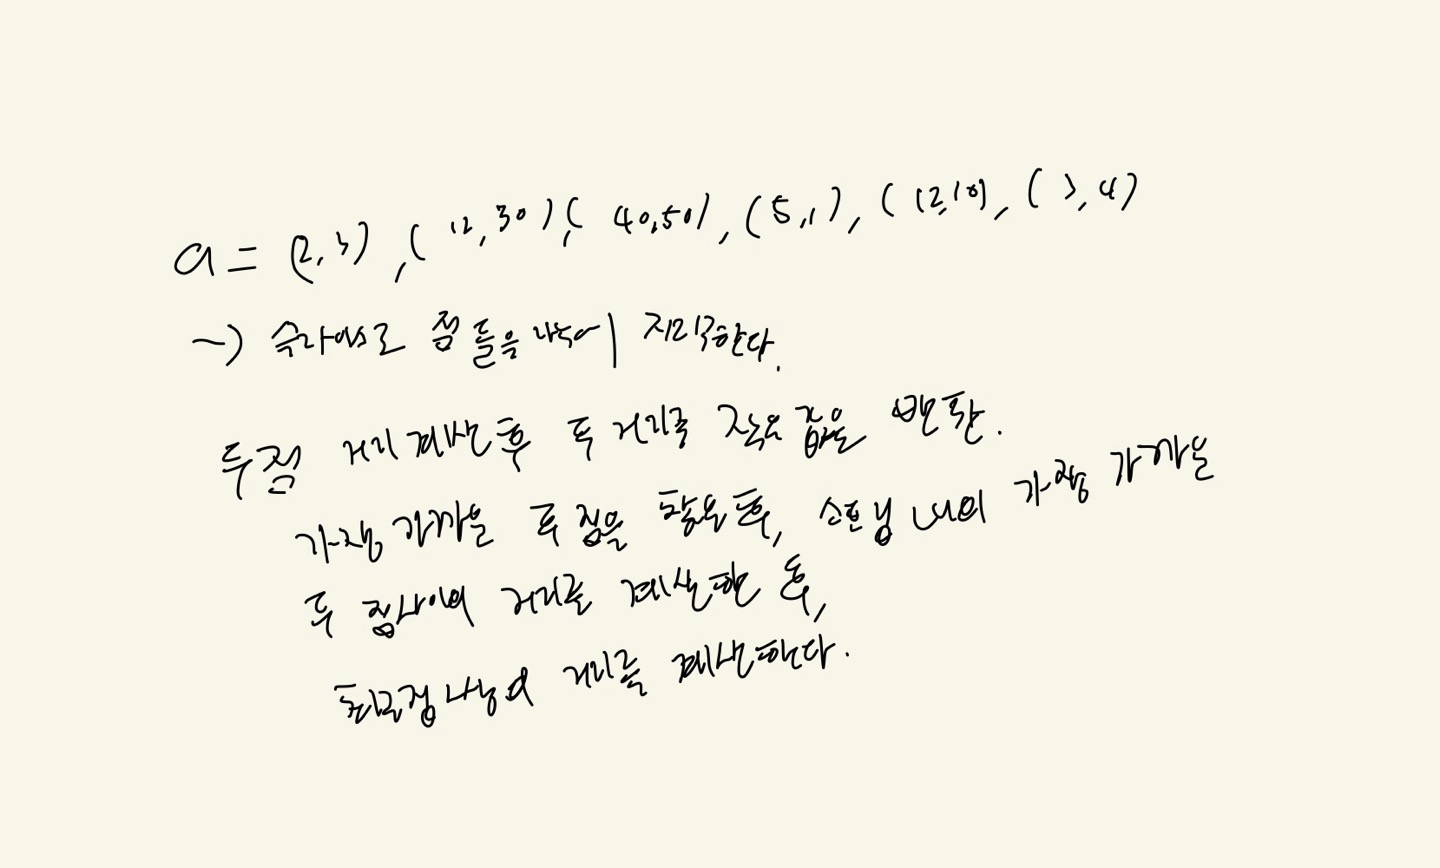 a = (2,3), (12,30), (40,50), (5,1), (12,10), (3,4)
→ 점들을 나누어 지각한다.
두점 거리 계산 후 두 거리 중 작은 값을 반환.
가장 가까운 두 점을 찾은 후, 스트립 내의 가장 가까운
두 점 사이의 거리를 계산한 후,
최근접 쌍의 거리를 계산한다.